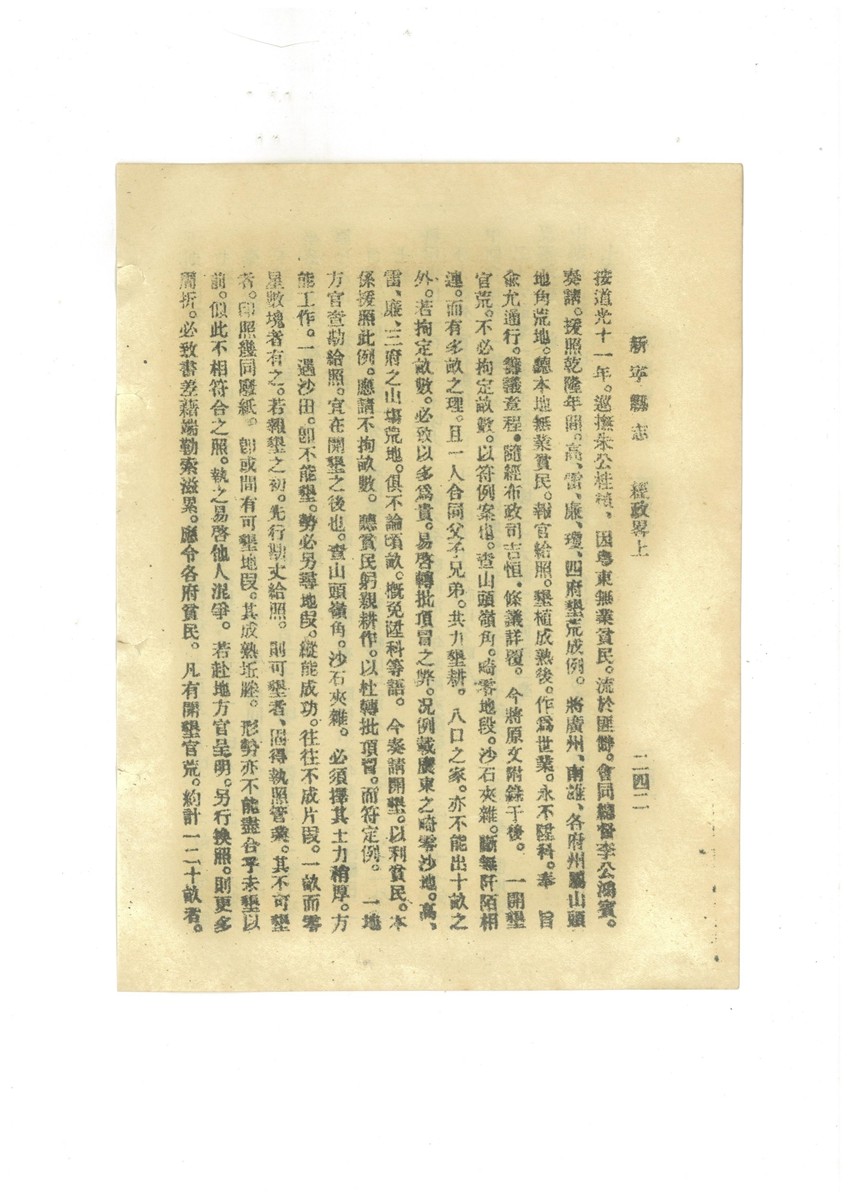 新寧縣志　經政畧上　二四二
按道光十一年。巡撫朱公桂楨、因粵東無業貧民。流於匪僻。會同總督李公鴻賓。
奏請。援照乾隆年間。高、雷、廉、瓊、四府墾荒成例。將廣州、南雄、各府州屬山頭
地角荒地。聽本地無業貧民。報官給照。墾植成熟後。作爲世業。永不陞科。奉　旨
兪允通行。籌議章程。隨經布政司吉恒。條議詳覆。今將原文附錄于後。一開墾
官荒。不必拘定畝數。以符例案也。查山頭嶺角。畸零地段。沙石夾雜。斷無阡陌相
連。而有多畝之理。且一人合同父子兄弟。共力墾耕。八口之家。亦不能出十畝之
外。若拘定畝數。必致以多爲貴。易啓轉批頂冒之弊。况例載廣東之畸零沙地。高、
雷、廉、三府之山塲荒地。俱不論頃畝。槪免陞科等語。今奏請開墾。以利貧民。本
係援照此例。應請不拘畝數。聽貧民躬親耕作。以杜轉批頂冒。而符定例。一地
方官查勘給照。宜在開墾之後也。查山頭嶺角。沙石夾雜。必須擇其土力稍厚。方
能工作。一遇沙田。卽不能墾。勢必另尋地段。縱能成功。往往不成片段。一畝而零
星數塊者有之。若報墾之初。先行勘丈給照。則可墾者、固得執照管業。其不可墾
者。印照幾同廢紙。卽或間有可墾地段。其成熟坵塍。形勢亦不能盡合乎未墾以
前。似此不相符合之照。執之易啓他人混爭。若赴地方官呈明。另行換照。則更多
周折。必致書差藉端勒索滋累。應令各府貧民。凡有開墾官荒。約計一二十畝者。